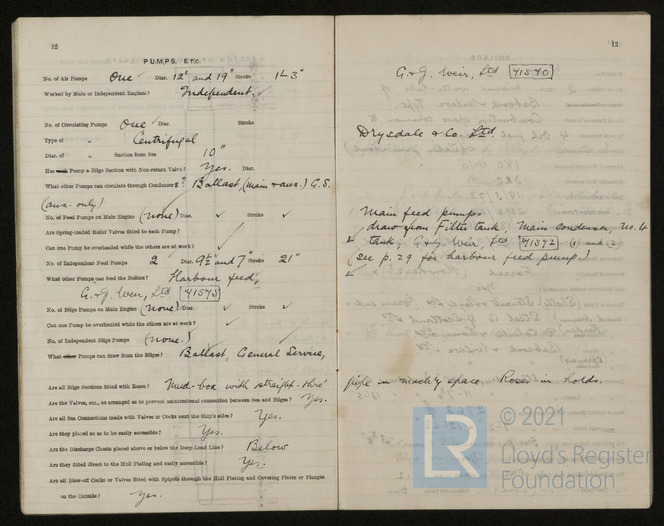 12
PUMPS, ETC.
No. of Air Pumps One Diar. 12" and 19" Stroke 1'-3"
Worked by Main or Independent Engines? Independent.
No. of Circulating Pumps One Diar. Stroke
Type of " Centrifugal
Diar. of " Suction from Sea 10"
Has Pump a Bilge Suction with Non-return Valve? Yes. Diar.
What other Pumps can circulate through Condenser? Ballast (main & aux.) G.S.
(aux. only)
No. of Feed Pumps on Main Engine (none) Diar. Stroke
Are Spring-loaded Relief Valves fitted to each Pump?
Can one Pump be overhauled while the others are at work?
No. of Independent Feed Pumps 2 Diar. 9½" and 7" Stroke 21"
What other Pumps can feed the Boilers? Harbour feed,
G. & J. Weir, Ltd 41543
No. of Bilge Pumps on Main Engine (none) Diar. Stroke
Can one Pump be overhauled while the others are at work?
No. of Independent Bilge Pumps (none.)
What other Pumps can draw from the Bilges? Ballast, General Service,
Are all Bilge Suctions fitted with Roses? Mud-box with straight-thro'
Are the Valves, etc., so arranged as to prevent unintentional connection between Sea and Bilges? Yes.
Are all Sea Connections made with Valves or Cocks next the Ship's sides? Yes.
Are they placed so as to be easily accessible? Yes.
Are the Discharge Chests placed above or below the Deep Load Line? Below
Are they fitted direct to the Hull Plating and easily accessible? Yes.
Are all Blow-off Cocks or Valves fitted with Spigots through the Hull Plating and Covering Plates or Flanges
on the Outside? Yes.
13
G. & J. Weir, Ltd 41540
Drysdale & Co. Ltd.
Main feed pumps
draw from Filter tank, Main condenser, No. 4
tank; G. & J. Weir, Ltd 41542 (1) and (2)
(see p. 29 for harbour feed pump.)
pipe in machy space. Roses in holds.
© 2021
LR
Lloyd's Register
Foundation